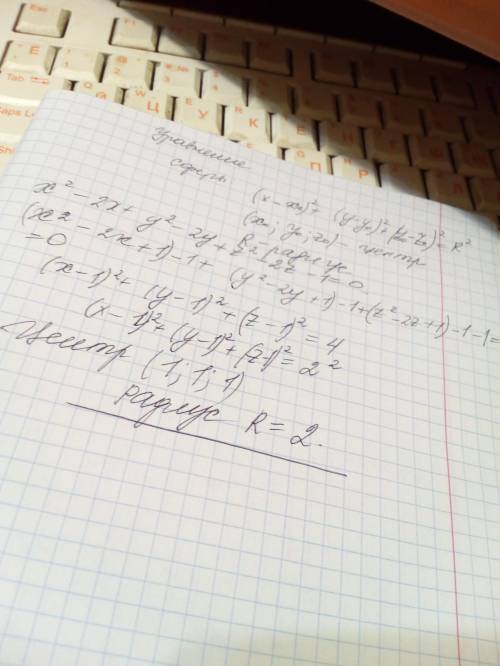 Уравнение
сферы:
(x-x₀)²+ (y-y₀)²+(z-z₀)²=R²
(x₀; y₀; z₀) - центр
R - радиус
x²-2x+ y²-2y+ z²-2z-1=0.
(x²-2x+1)-1+ (y²-2y+1)-1+(z²-2z+1)-1-1=
=0
(x-1)²+ (y-1)²+(z-1)²=4
(x-1)²+(y-1)²+(z-1)²=2²
Центр (1; 1; 1)
радиус R=2.